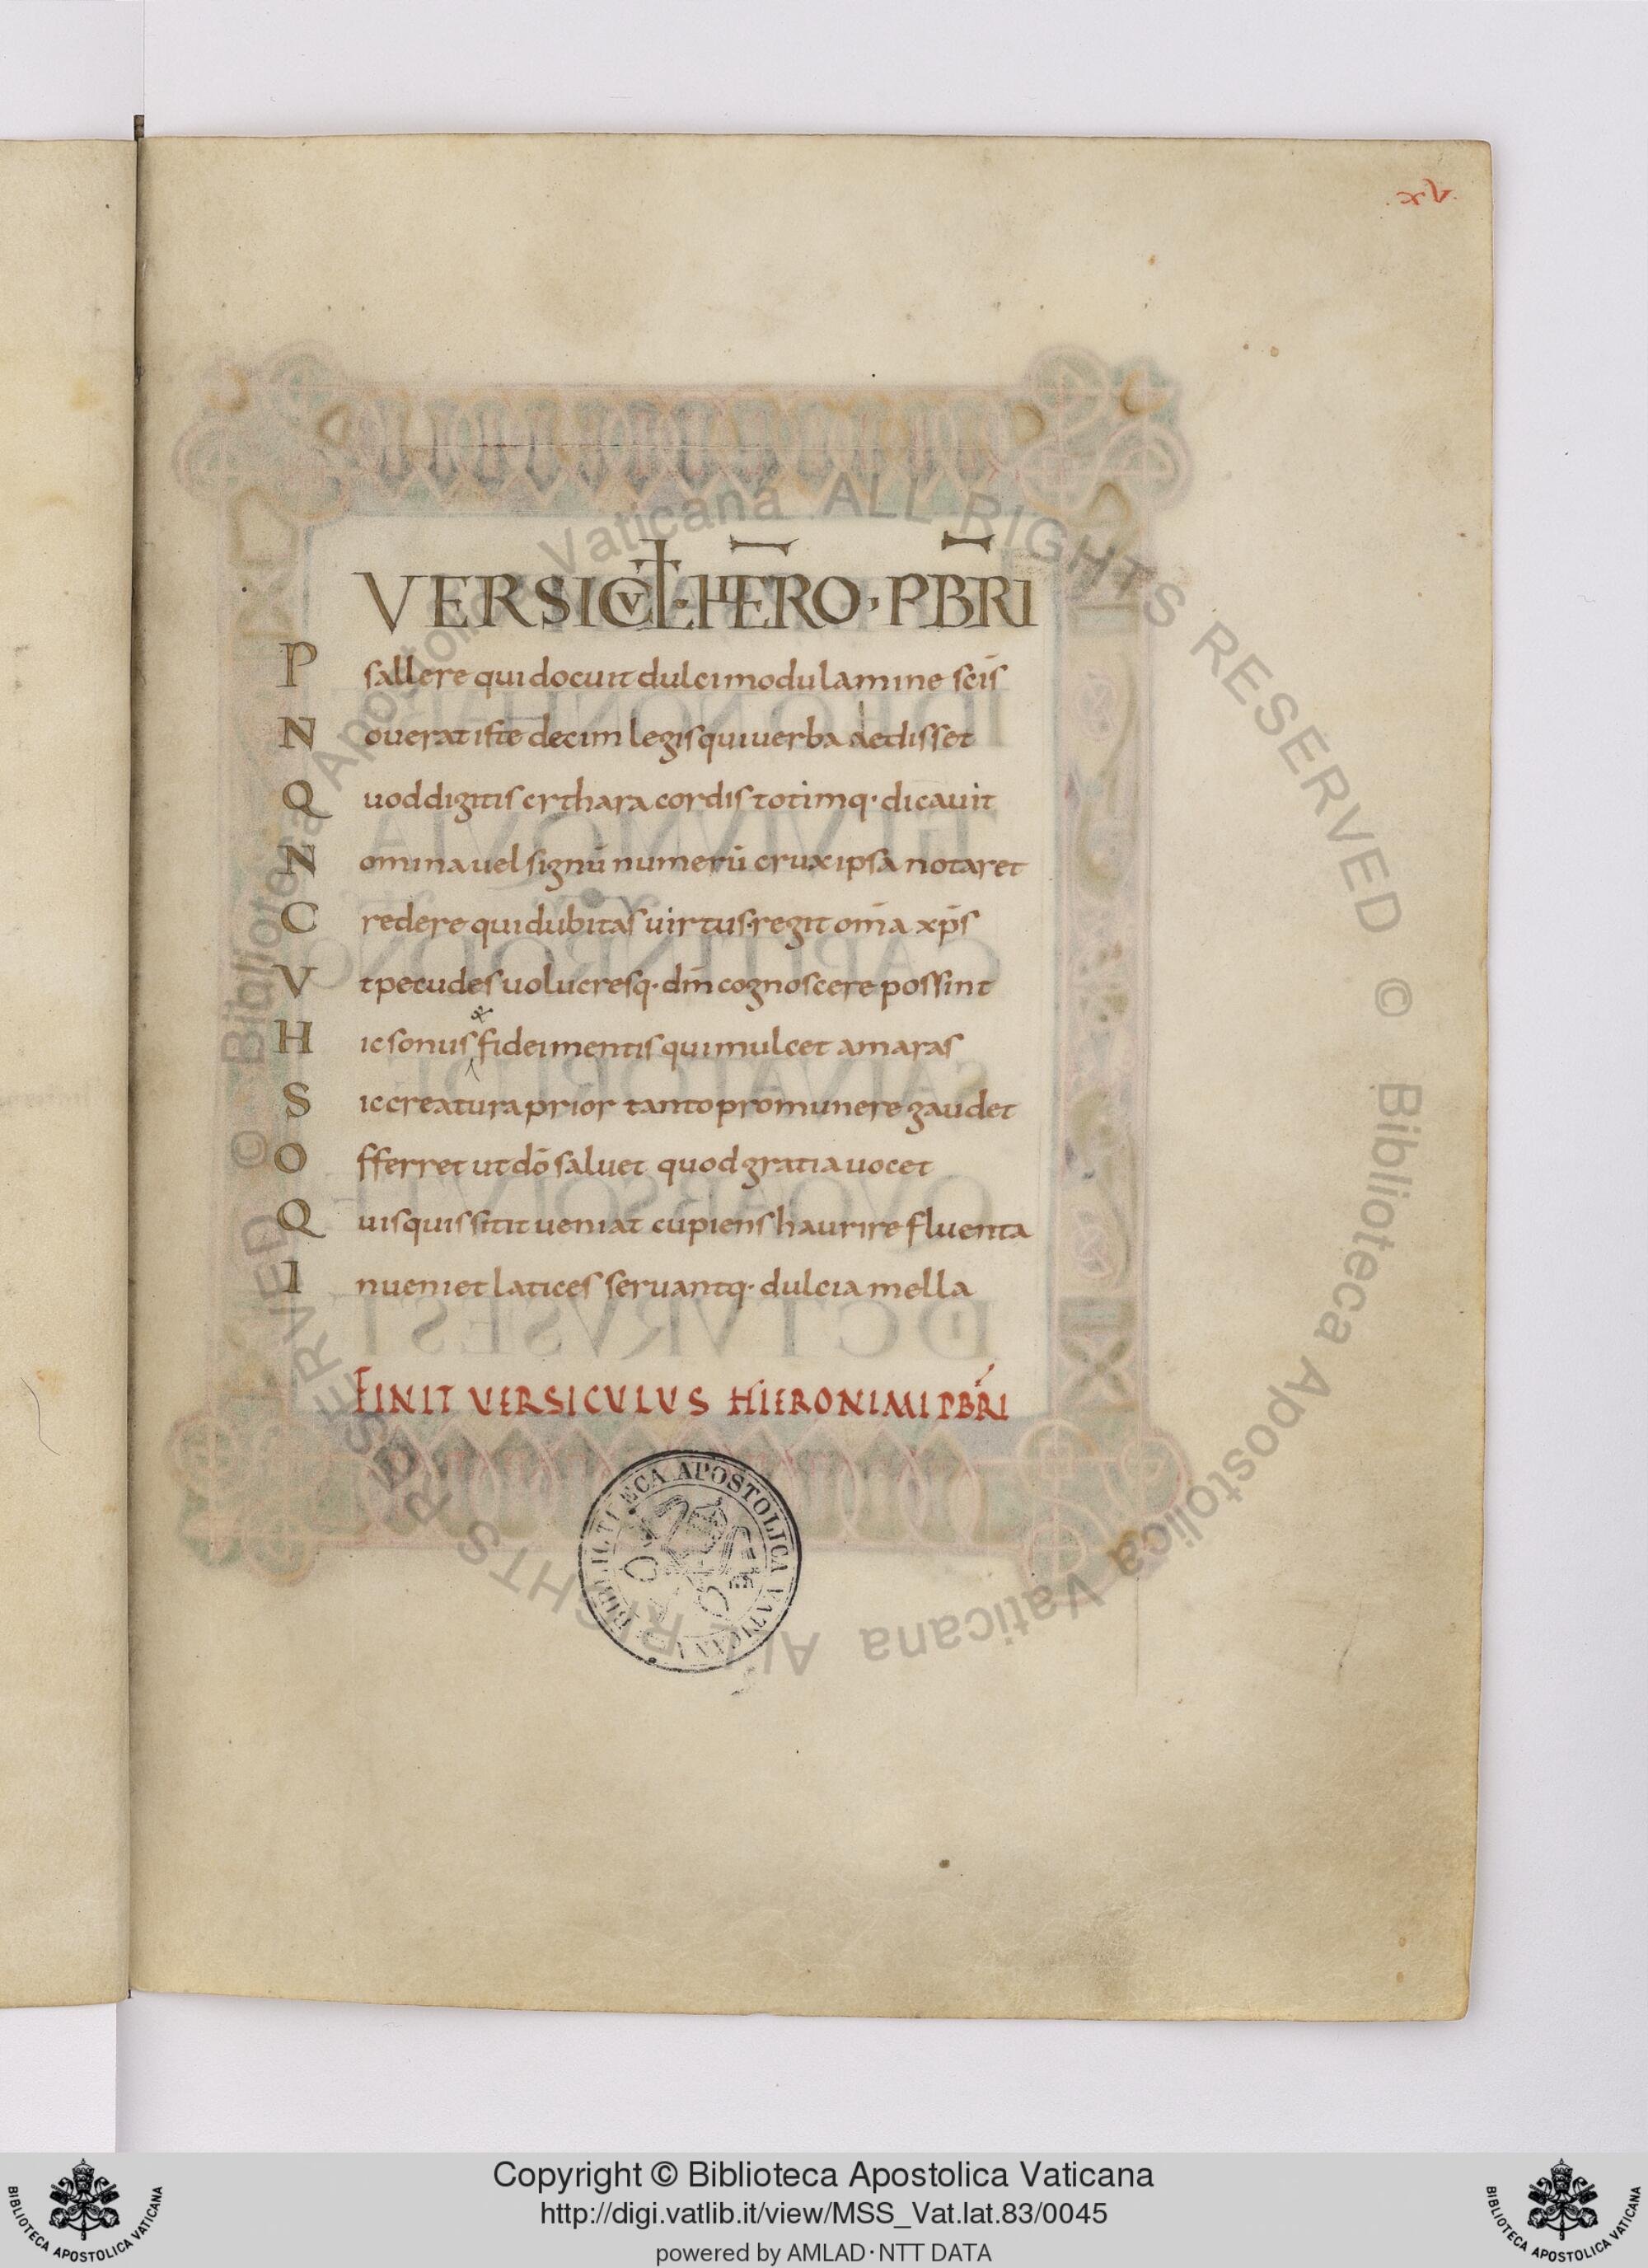 .xv.
VERSICVL·HERO·PBRI
Psallere qui docuit dulci modulamine scīs
Nouerat iste decim legis qui uerba dedisset
Quod digitis cythara cordis totimq· dicauit
Nomina uel signū numerū crux ipsa notaret
Credere qui dubitas uirtus regit om̄a xp̄s
Vt pecudes uolucresq· dm̄ cognoscere possint
Hic sonus & fidei mentis qui mulcet amaras
Sic creatura prior tanto pro munere gaudet
Offerret ut dō saluet quod gratia uocet
Quisquis sitit ueniat cupiens haurire fluenta
Inueniet latices seruantq· dulcia mella
FINIT VERSICULUS HIERONIMI PBRI
BIBLIOTECA APOSTOLICA VATICANA
© Biblioteca Apostolica Vaticana ALL RIGHTS RESERVED
© Biblioteca Apostolica Vaticana ALL RIGHTS RESERVED
Copyright © Biblioteca Apostolica Vaticana
http://digi.vatlib.it/view/MSS_Vat.lat.83/0045
powered by AMLAD·NTT DATA
BIBLIOTECA APOSTOLICA VATICANA
BIBLIOTECA APOSTOLICA VATICANA